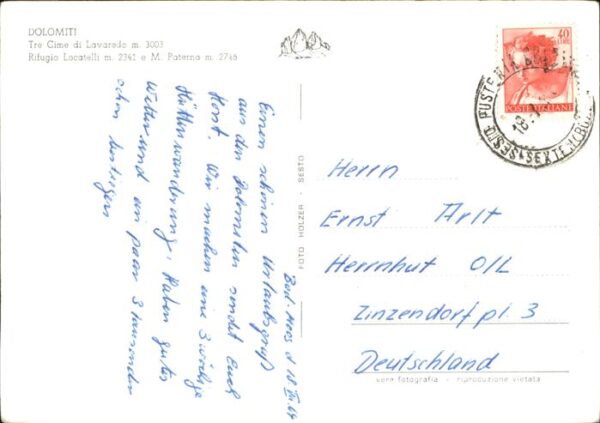 DOLOMITI
Tre Cime di Lavaredo m. 3003
Rifugio Locatelli m. 2341 e M. Paterno m. 2746
40
LIRE
POSTE ITALIANE
SESTO PUSTERIA
SEXTEN
18.
Bad. Moos d 18 VII. 64
Einen schönen Urlaubsgruß
aus den Dolomiten sendet Euch
Horst. Wir machen eine
Hüttenwanderung. Haben gutes
Wetter und ein paar 3 tausender
schon bestiegen
FOTO HOLZER - SESTO
Herrn
Ernst Arlt
Herrnhut O/L
Zinzendorfpl. 3
Deutschland
vera fotografia - riproduzione vietata